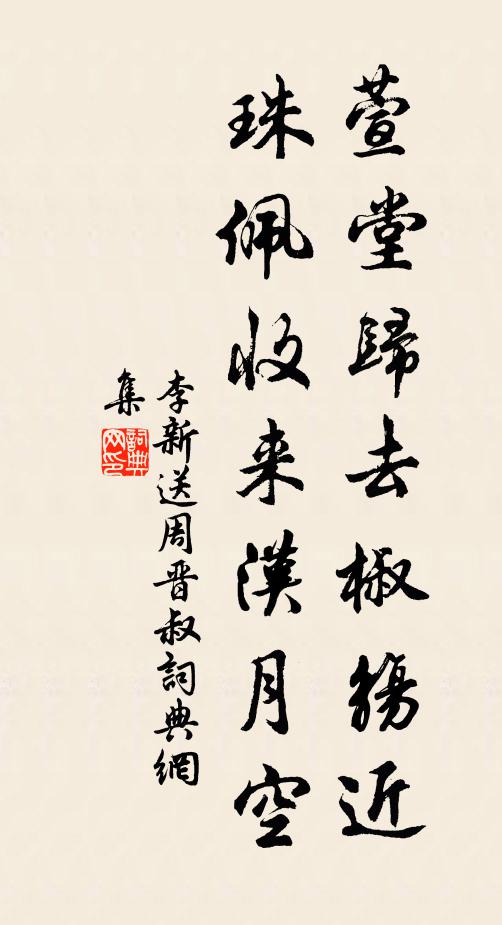 萱堂歸去椒觴近
珠佩收来漢月空
李新送周晋叔詞典網
集
詞典
网印